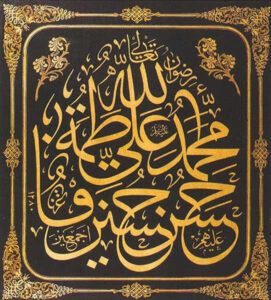 رضوان الله تعالى
محمد علي فاطمة
حسن حسين
عليهم اجمعين